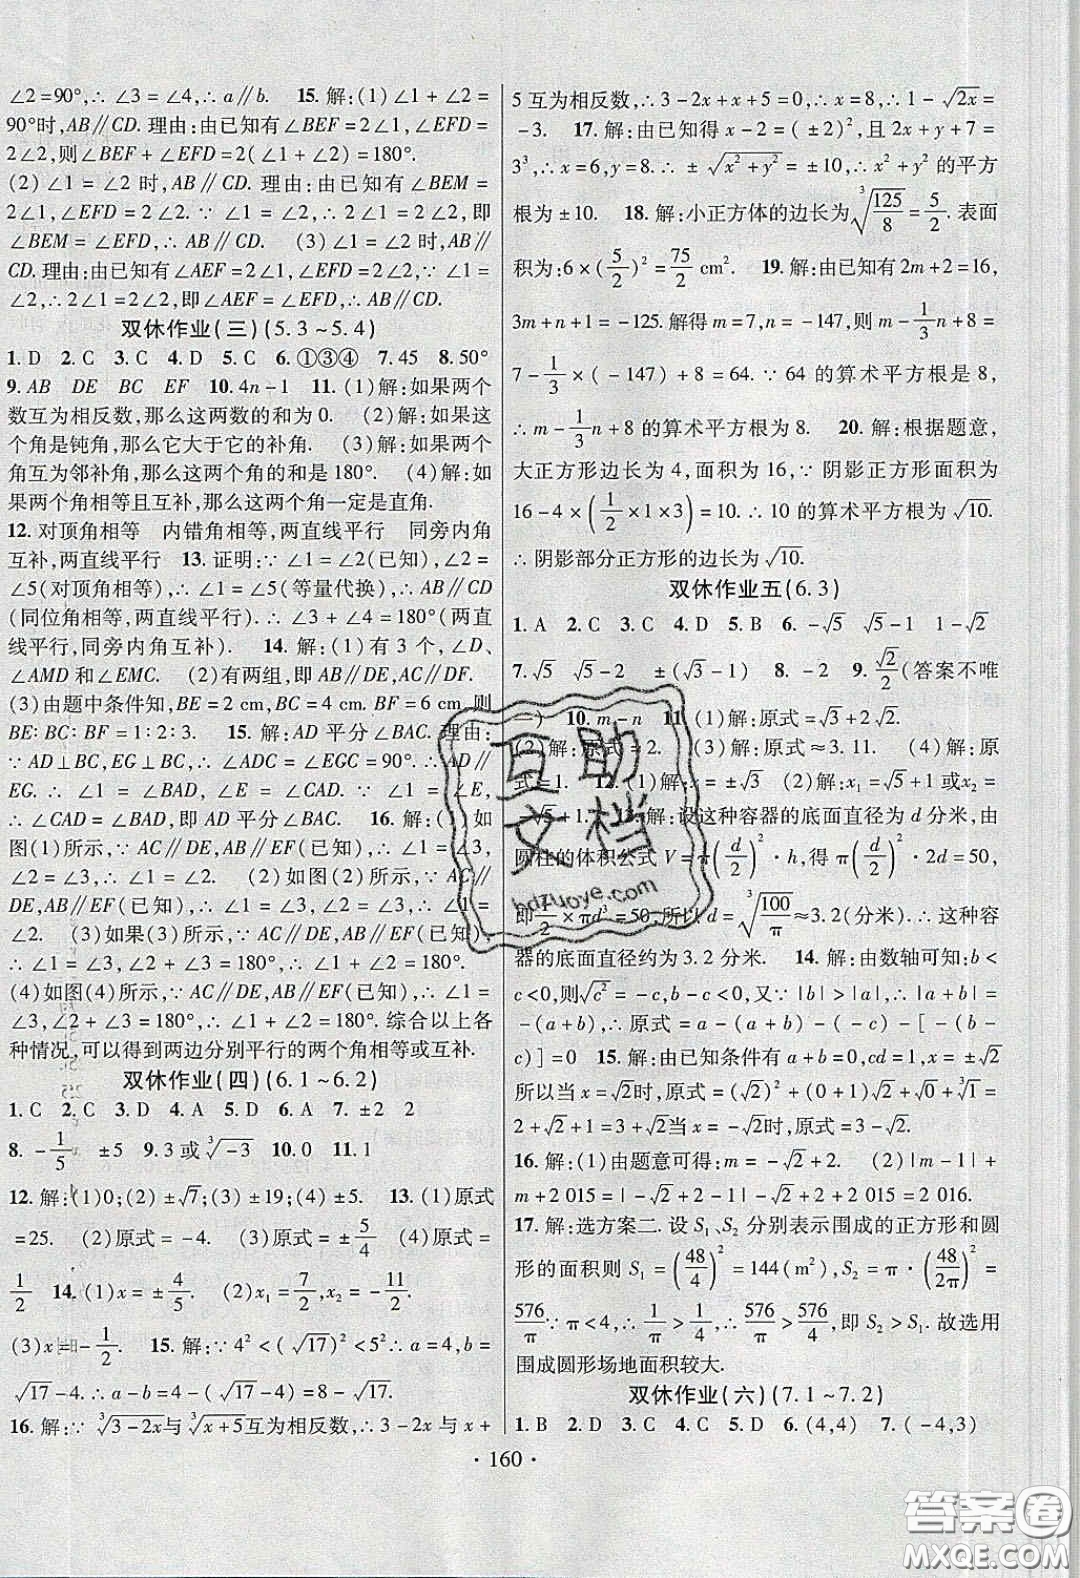 ∠2=90°,∴ ∠3=∠4,∴ a∥b.　15. 解:(1)∠1+∠2=
90°时,AB∥CD. 理由:由已知有∠BEF=2∠1,∠EFD=
2∠2,则∠BEF+∠EFD=2(∠1+∠2)=180°.
(2)∠1=∠2 时,AB∥CD. 理由:由已知有∠BEM=
2∠1,∠EFD=2∠2. ∵ ∠1=∠2,∴ 2∠1=2∠2,即
∠BEM=∠EFD,∴ AB∥CD.　(3)∠1=∠2 时,AB∥
CD. 理由:由已知有∠AEF=2∠1,∠EFD=2∠2,∵ ∠1=
∠2,∴ 2∠1=2∠2,即∠AEF=∠EFD,∴ AB∥CD.
双休作业(三)(5.3~5.4)
1. D　2. C　3. C　4. D　5. C　6. ①③④　7. 45　8. 50°
9. AB　DE　BC　EF　10. 4n-1　11. (1)解:如果两个
数互为相反数,那么这两数的和为 0.　(2)解:如果这
个角是钝角,那么它大于它的补角.　(3)解:如果两个
角互为邻补角,那么这两个角的和是 180°.　(4)解:如
果两个角相等且互补,那么这两个角一定是直角.
12. 对顶角相等　内错角相等,两直线平行　同旁内角
互补,两直线平行　13. 证明:∵ ∠1=∠2(已知),∠2=
∠5(对顶角相等),∴ ∠1=∠5(等量代换),∴ AB∥CD
(同位角相等,两直线平行). ∴ ∠3+∠4=180°(两直
线平行,同旁内角互补).　14. 解:(1)有 3 个,∠D、
∠AMD 和∠EMC.　(2)有两组,即 AB∥DE,AC∥DF.
(3)由题中条件知,BE=2 cm,BC=4 cm,BF=6 cm,则
BE∶BC∶BF=1∶2∶3.　15. 解:AD 平分∠BAC. 理由:
∵ AD⊥BC,EG⊥BC,∴ ∠ADC=∠EGC=90°. ∴ AD∥
EG. ∴ ∠1=∠BAD,∠E=∠CAD. ∵ ∠E=∠1,
∴ ∠CAD=∠BAD,即 AD 平分∠BAC.　16. 解:(1)如
图(1)所示,∵ AC∥DE,AB∥EF(已知),∴ ∠1=∠3,
∠2=∠3,∴ ∠1=∠2　(2)如图(2)所示,∵ AC∥
DE,AB∥EF(已知),∴ ∠1=∠3,∠2=∠3,∴ ∠1=
∠2.　(3)如果(3)所示,∵ AC∥DE,AB∥EF(已知),
∴ ∠1=∠3,∠2+∠3=180°,∴ ∠1+∠2=180°.
(4)如图(4)所示,∵ AC∥DE,AB∥EF(已知),∴ ∠1=
∠3,∠2+∠3=180°,∴ ∠1+∠2=180°. 综合以上各
种情况,可以得到两边分别平行的两个角相等或互补.
双休作业(四)(6.1~6.2)
1. C　2. C　3. C　4. A　5. D　6. A　7. ±2　2
8. -1/5　±5　9. 3 或 ∛-3　10. 0　11. 1
12. 解:(1)0;(2)±√7;(3)±19;(4)±5.　13. (1)原式
=25.　(2)原式=-4.　(3)原式=±5/4　(4)原式=
1/2　14. (1)x=±4/5.　(2)x₁=7/2,x₂=-11/2.
(3)x=-1/2.　15. 解:∵ 4²<(√17)²<5²∴ a=4,b=
√17-4. ∴ a-b=4-(√17-4)=8-√17.
16. 解:∵ ∛(3-2x)与∛(x+5)互为相反数,∴ 3-2x 与 x+
5 互为相反数,∴ 3-2x+x+5=0,∴ x=8,1-√(2x)=
-3.　17. 解:由已知得 x-2=(±2)²,且 2x+y+7=
3³,∴ x=6,y=8. ∴ ±√(x²+y²)=±10,∴ x²+y² 的平方
根为±10.　18. 解:小正方体的边长为∛(125/8)=5/2. 表面
积为:6×(5/2)²=75/2 cm².　19. 解:由已知有 2m+2=16,
3m+n+1=-125. 解得 m=7,n=-147,则 m-1/3n+8=
7-1/3×(-147)+8=64. ∵ 64 的算术平方根是 8,
∴ m-1/3n+8 的算术平方根为 8.　20. 解:根据题意,
大正方形边长为 4,面积为 16,∵ 阴影正方形面积为
16-4×(1/2×1×3)=10. ∴ 10 的算术平方根为√10.
∴ 阴影部分正方形的边长为√10.
双休作业五(6.3)
1. A　2. C　3. C　4. D　5. B　6. -√5　√5-1　1-√2
7. √5　√5-2　±(√3-1)　8. -2　9. √2/2(答案不唯
一)　10. m-n　11. (1)解:原式=√3+2√2.
(2)解:原式=2.　(3)解:原式≈3.11.　(4)解:原
式=1.　12. (1)解:x=±√3　(2)解:x₁=√5+1或x₂=
-√5+1.　13. 解:设这种容器的底面直径为 d 分米,由
圆柱的体积公式 V=π(d/2)²·h,得 π(d/2)²·2d=50,
即1/2×πd³=50,所以 d=∛(100/π)≈3.2(分米). ∴ 这种容
器的底面直径约为 3.2 分米.　14. 解:由数轴可知:b<
c<0,则√c²=-c,a>0,又∵ |b|>|a|,∴ |a+b|=
-(a+b),∴ 原式=a-(a+b)-(-c)-[-(b-
c)]=0　15. 解:由已知条件有 a+b=0,cd=1,x=±√2
所以当 x=√2时,原式=(√2)²+(0+1)√2+√0+∛1=
2+√2+1=3+√2. 当 x=-√2时,原式=3-√2.
16. 解:(1)由题意可得:m=-√2+2.　(2)|m-1|+
m+2 015=|-√2+2-1|-√2+2+2 015=2 016.
17. 解:选方案二. 设 S₁、S₂ 分别表示围成的正方形和圆
形的面积则 S₁=(48/4)²=144(m²),S₂=π·(48/2π)²=
576/π∵ π<4,∴ 1/π>1/4,∴ 576/π>576/4,即 S₂>S₁. 故选用
围成圆形场地面积较大.
双休作业(六)(7.1~7.2)
1. B　2. D　3. C　4. C　5. D　6. (4,4)　7. (-4,3)
· 160 ·
互助
文档
hdzuoye.com
答案圈
MXQE.COM